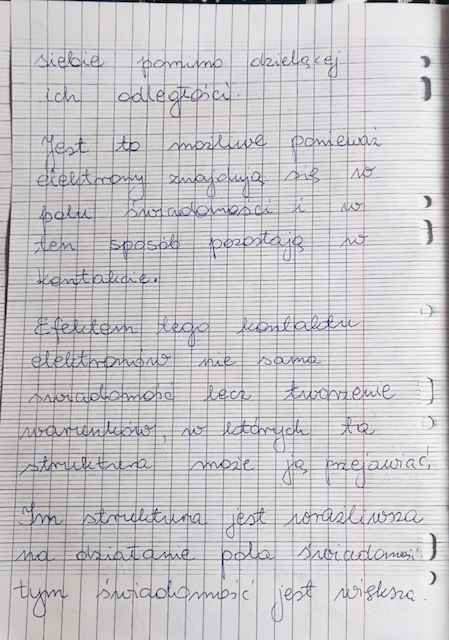 siebie pomimo dzielącej
ich odległości.
Jest to możliwe ponieważ
elektrony znajdują się w
polu świadomości i w
ten sposób pozostają w
kontakcie.
Efektem tego kontaktu
elektronów nie sama
świadomość lecz tworzenie
warunków, w których ta
struktura może ją przejawiać.
Im struktura jest wrażliwsza
na działanie pola świadomości
tym świadomość jest większa.